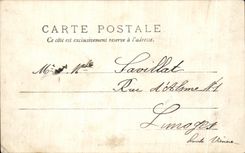 CARTE POSTALE
Ce côté est exclusivement réservé à l'adresse.
Savillat
Rue d'
Limoges
Haute Vienne